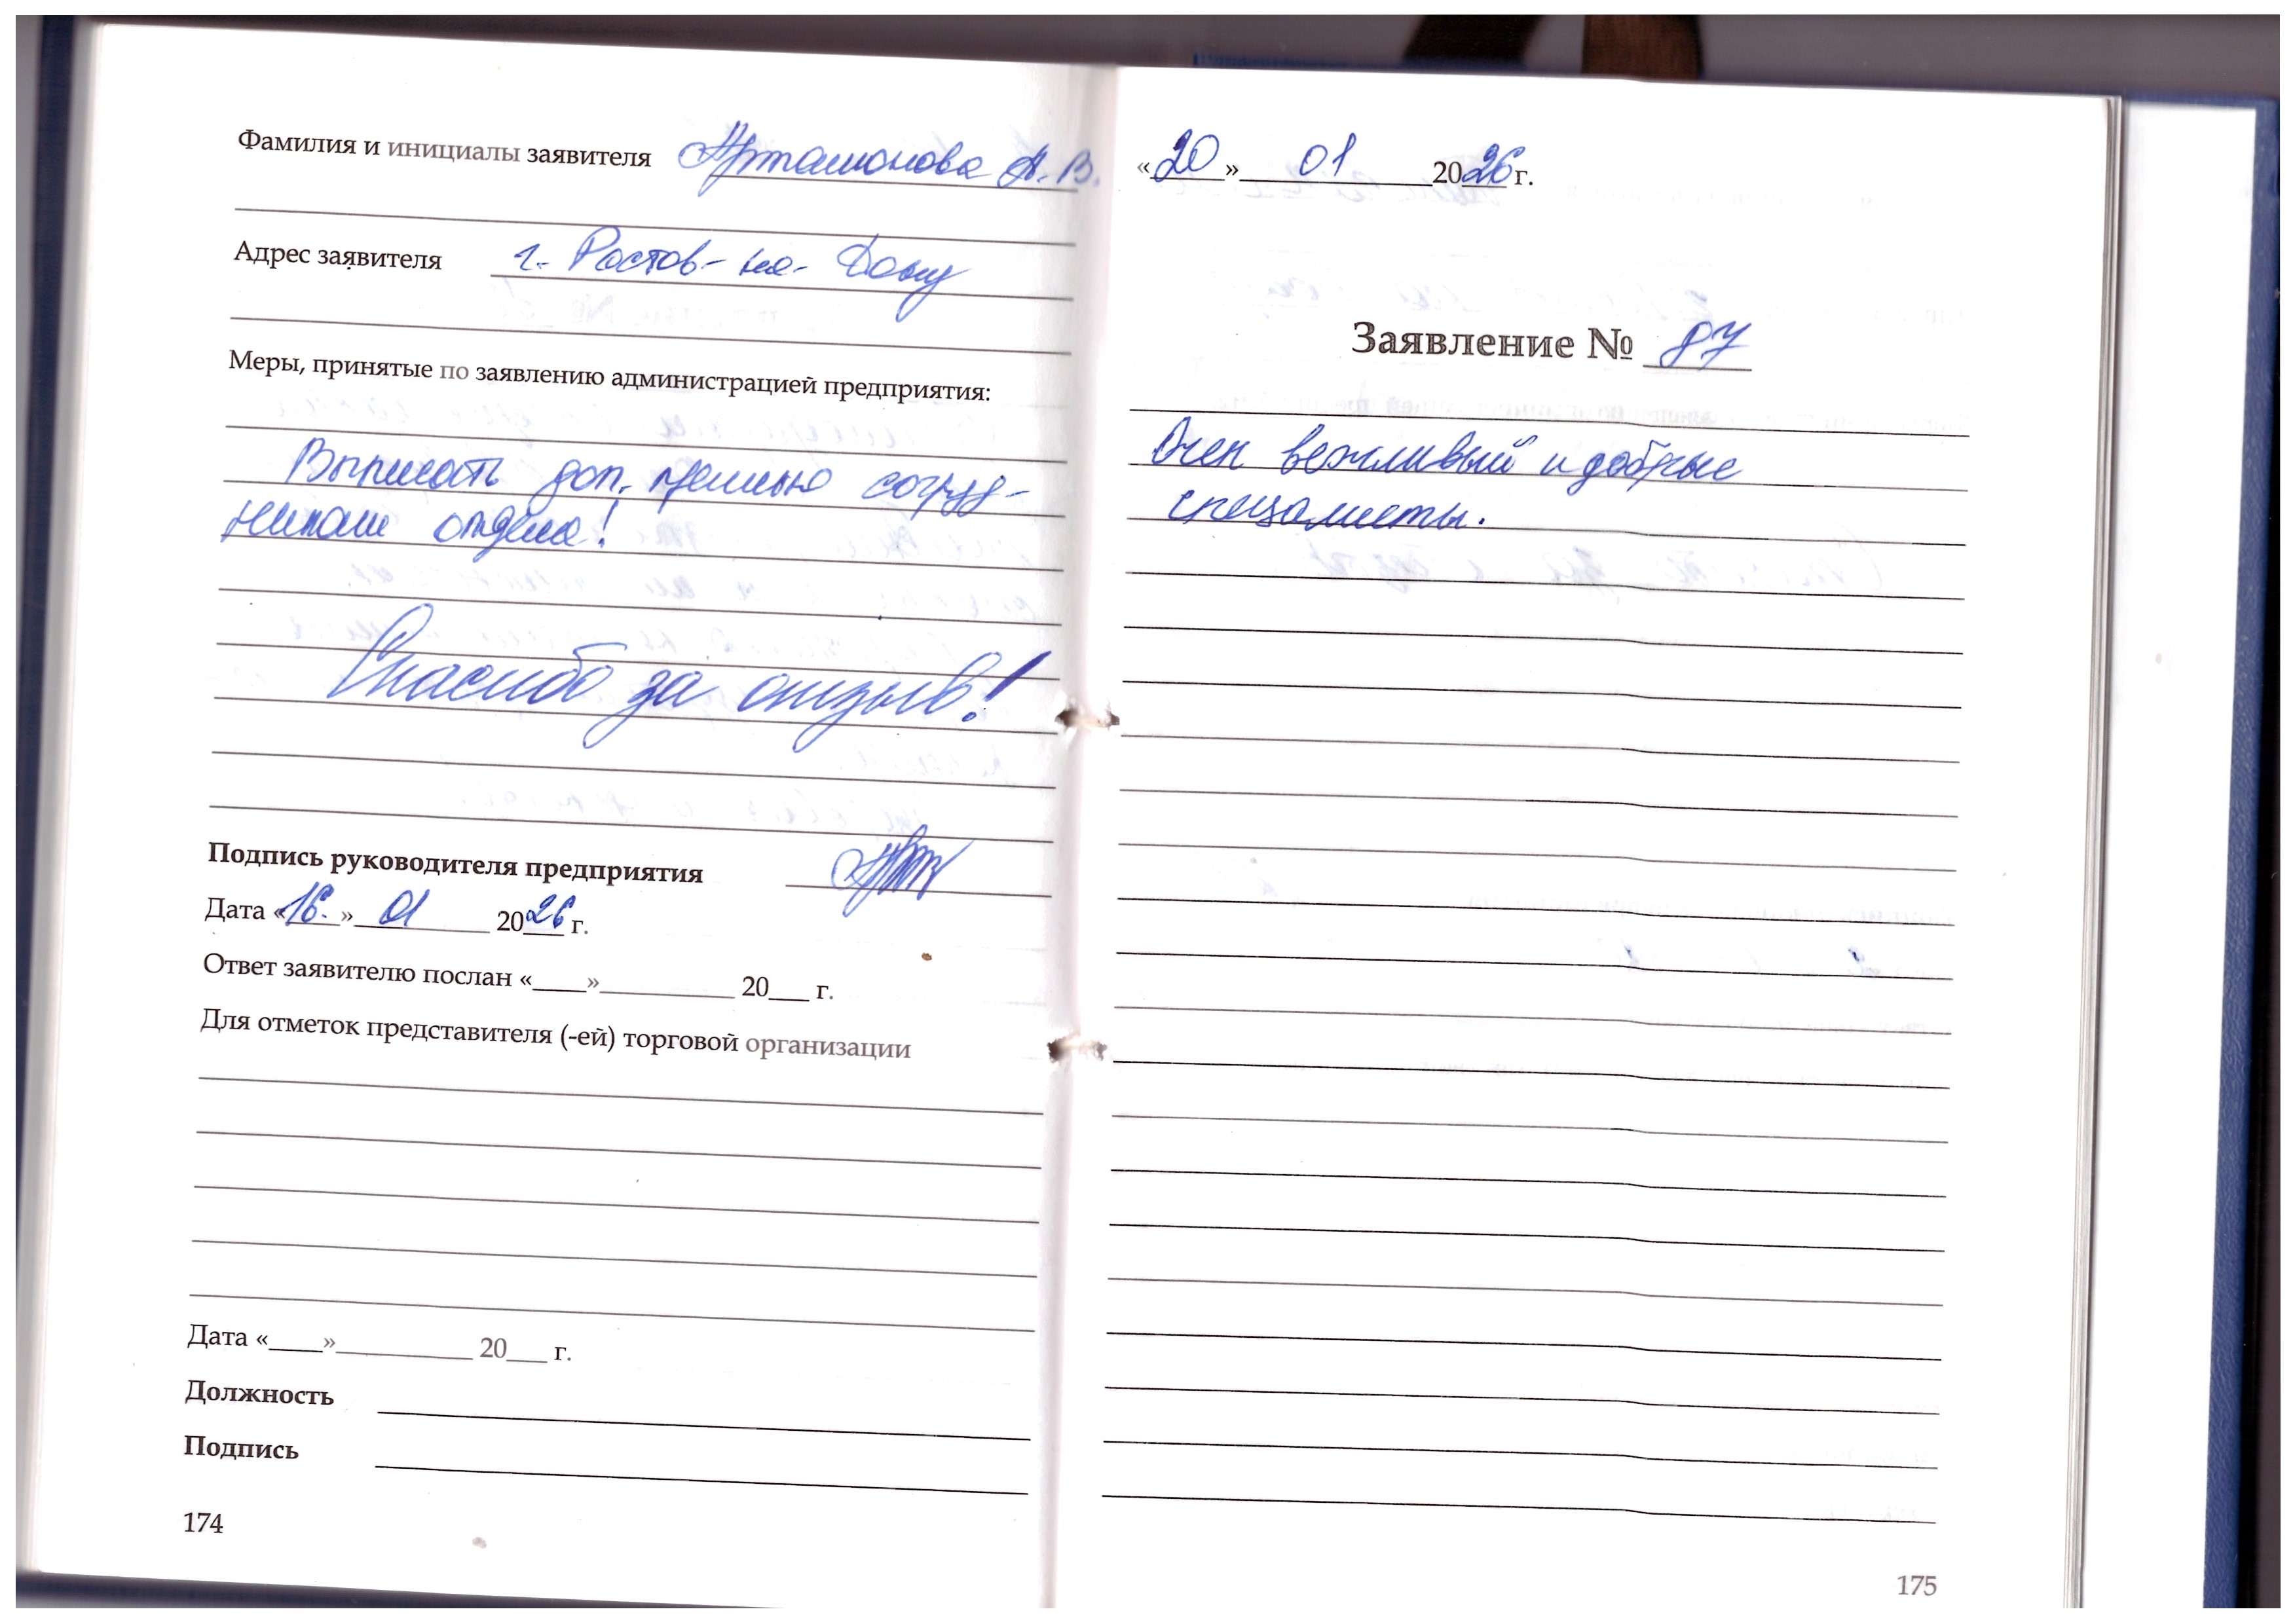 Фамилия и инициалы заявителя Арташонова А.В.
Адрес заявителя г. Ростов-на-Дону
Меры, принятые по заявлению администрацией предприятия:
Выписать доп. премию сотруд-
никам отдела!
Спасибо за отзыв!
Подпись руководителя предприятия
Дата «16.» 01 2026 г.
Ответ заявителю послан «____»__________ 20___ г.
Для отметок представителя (-ей) торговой организации
Дата «____»__________ 20___ г.
Должность
Подпись
174
«20» 01 2026 г.
Заявление № 87
Очен вежливый и добрые
спецалисты.
175